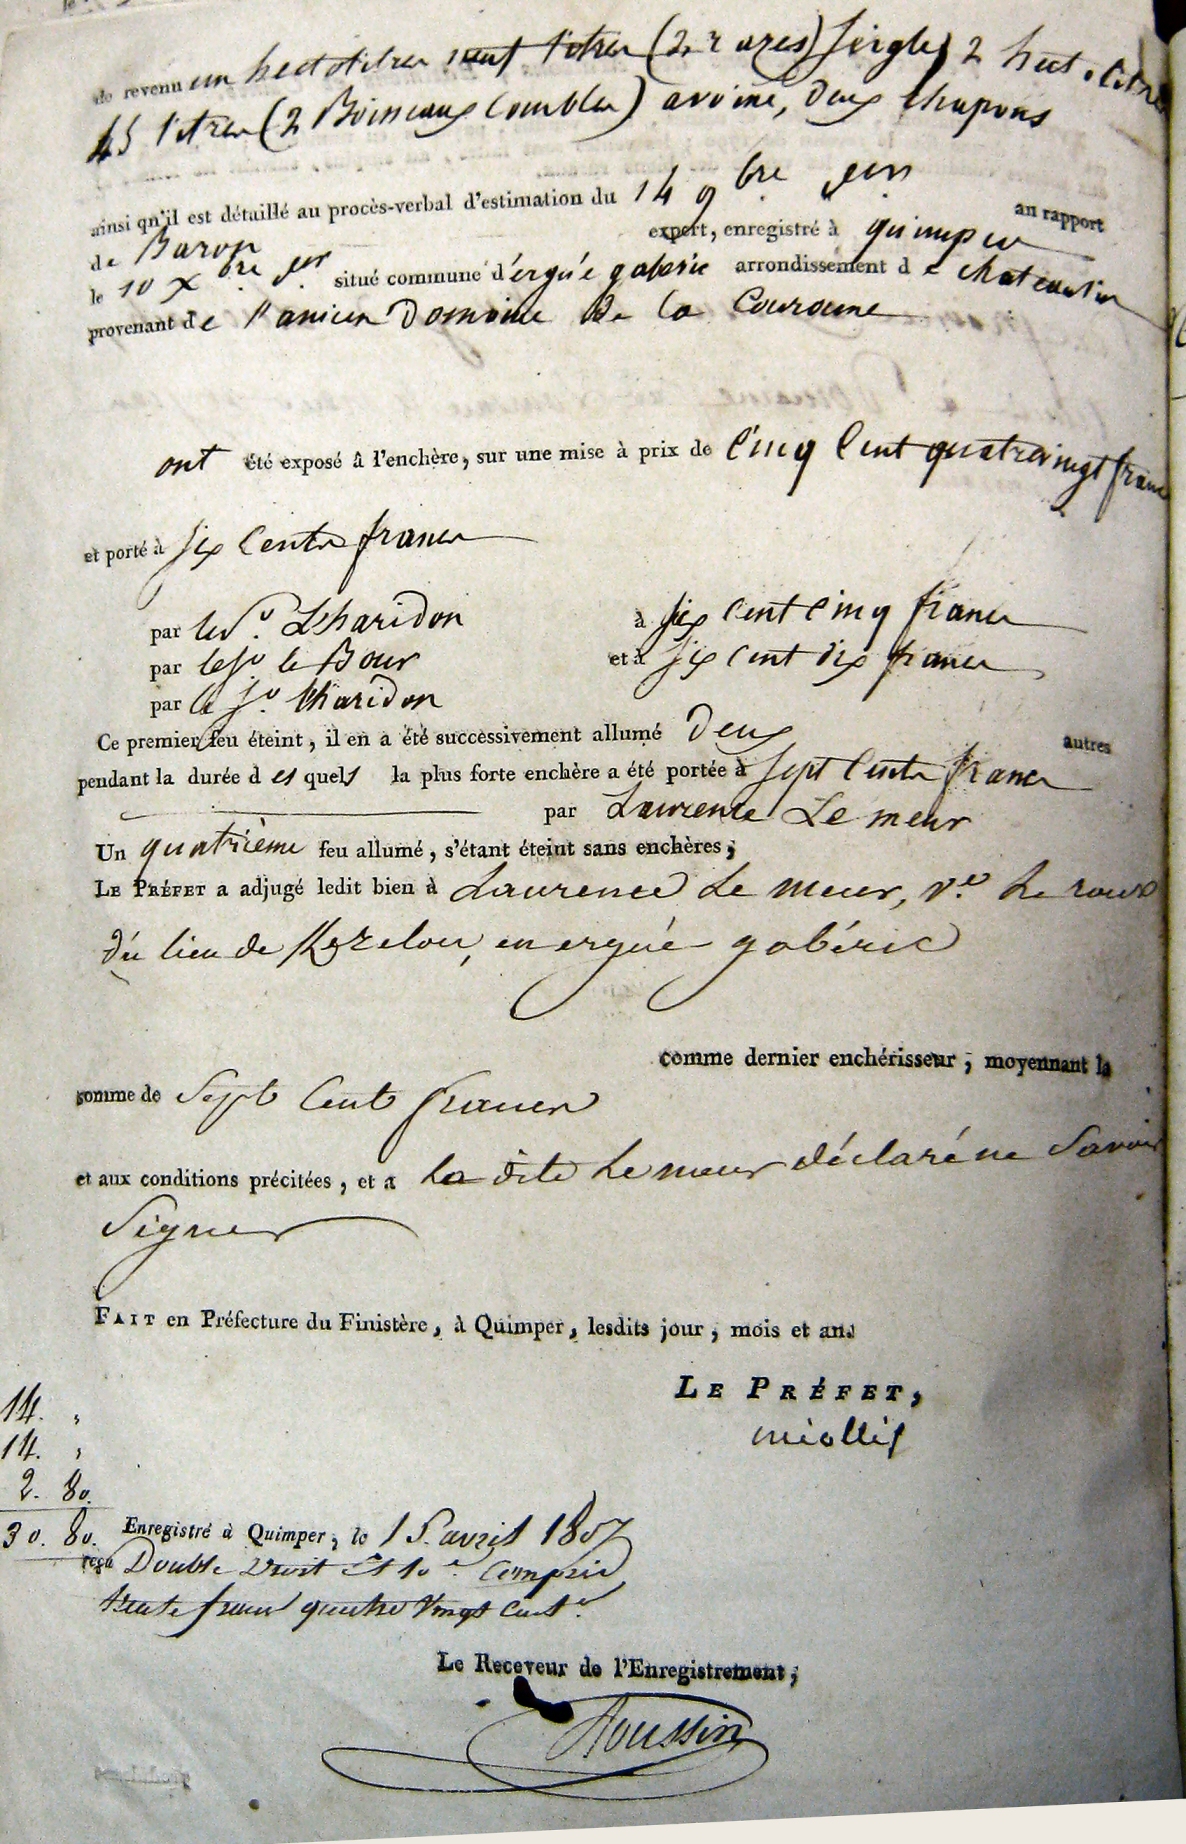 de revenu un hectolitre neuf litres (2 razes) seigle, 2 hectolitres
45 litres (2 Boisseaux Combles) avoine, deux chapons
ainsi qu'il est détaillé au procès-verbal d'estimation du 14 9bre dern
an rapport
de Baron expert, enregistré à quimper
le 10 Xbre der situé commune d'ergué gaberic arrondissement de chateaulin
provenant de l'anicien Domaine de la Couronne
ont été exposé â l'enchère, sur une mise à prix de Cinq Cent quatrevingt francs
et porté à six Cents francs
par le Sr. L'haridon à six cent cinq francs
par le Sr le Bour et à six cent dix francs
par le Sr. l'haridon
Ce premier feu éteint, il en a été successivement allumé Deux autres
pendant la durée desquels la plus forte enchère a été portée à sept Cents francs
par Laurence Le meur
Un quatrième feu allumé, s'étant éteint sans enchères,
LE PRÉFET a adjugé ledit bien à Laurence Le meur, Ve Le roux
du lieu de Kerelou, en ergué gabéric
comme dernier enchérisseur, moyennant la
somme de Sept Cents francs
et aux conditions précitées, et a la dite Le meur déclaré ne Savoir
Signer
FAIT en Préfecture du Finistère, à Quimper, lesdits jour, mois et an.
LE PRÉFET,
Miollis
14. "
14. "
2. 80.
30. 80.
Enregistré à Quimper, le 15 avril 1807
reçu Double Droit et 10e Compris
trente francs quatre vingt Cent.
Le Receveur de l'Enregistrement,
Toussin